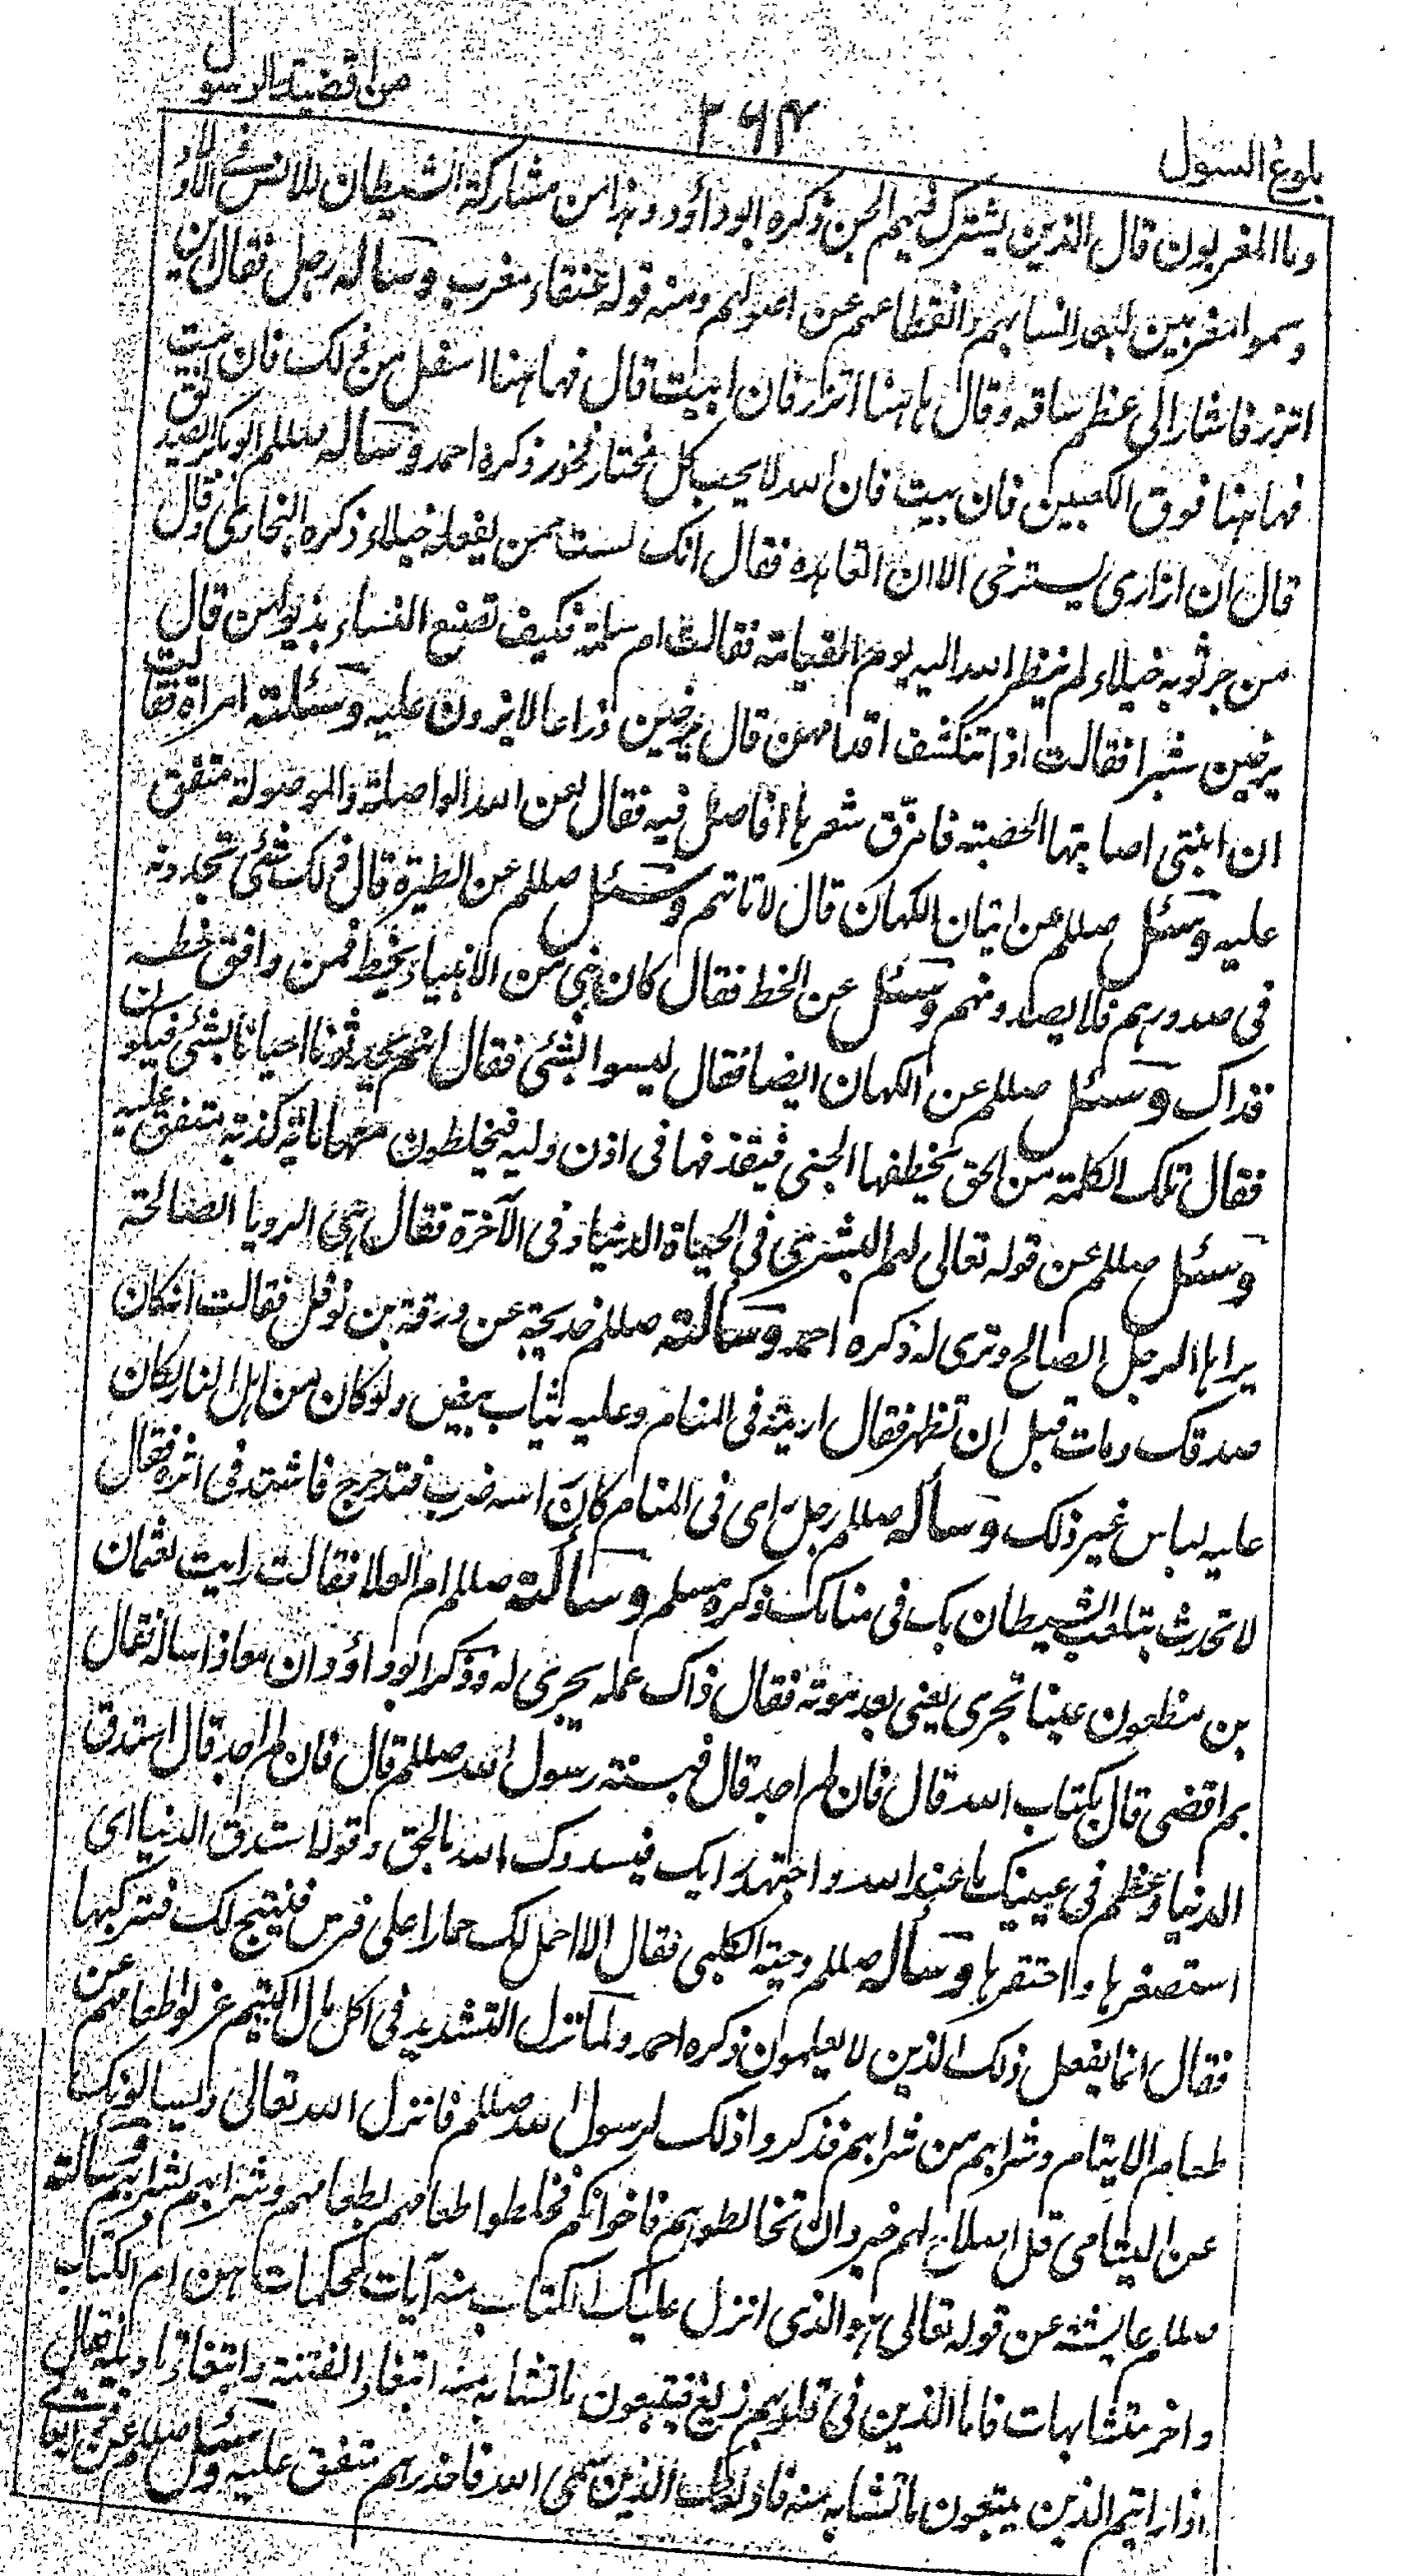 بلوغ السول
٢٦٤
من اقضیة الرسول
وما المغربون قال الذين يشترك فيهم الجن ذكره ابوداؤد وهذا من مشاركة الشيطان للانس فى الاولاد
وسموا مغربين لبعد انسابهم وانقطاعهم عن اصولهم ومنه قوله عنقاء مغرب وساله رجل فقال اين
اتزر فاشار الى عظم ساقه وقال ها هنا اتزر فان ابيت قال فهاهنا اسفل من ذلك فان ابيت
فهاهنا فوق الكعبين فان ابيت فان الله لا يحب كل مختار فخور ذكره احمد وساله صللم ابوبكر الصديق
قال ان ازارى يسترخى الا ان اتعاهده فقال انك لست ممن يفعله خيلاء ذكره البخارى وقال
من جر ثوبه خيلاء لم ينظر الله اليه يوم القيامة فقالت ام سلمة فكيف تصنع النساء بذيولهن قال
يرخين شبرا فقالت اذا تنكشف اقدامهن قال يرخين ذراعا لا يزدن عليه وسئلته امراة فقالت
ان ابنتى اصابتها الحصبة فامزق شعرها افاصل فيه فقال لعن الله الواصلة والموصولة متفق
عليه وسئل صللم عن اتيان الكهان قال لا تاتهم وسئل صللم عن الطيرة قال ذلك شئ تجدونه
فى صدورهم فلا يصدونهم وسئل عن الخط فقال كان نبى من الانبياء يخط فمن وافق خطه
فذاك وسئل صللم عن الكهان ايضا فقال ليسوا بشئ فقال انهم يحدثونا احيانا بشئ فيكون
فقال تلك الكلمة من الحق يخطفها الجنى فيقذفها فى اذن وليه فيخلطون منها مائة كذبة متفق عليه
وسئل صللم عن قوله تعالى لهم البشرى فى الحياة الدنيا وفى الآخرة فقال هى الرويا الصالحة
يراها الرجل الصالح وترى له ذكره احمد وسالته صللم خديجة عن ورقة بن نوفل فقالت انه كان
صدقك ومات قبل ان تظهر فقال اريته فى المنام وعليه ثياب بيض ولو كان من اهل النار لكان
عليه لباس غير ذلك وساله صللم رجل راى فى المنام كان راسه ضرب فتدحرج فاشتد فى اثره فقال
لا تحدث بتلعب الشيطان بك فى منامك ذكره مسلم وسالته صللم ام العلا فقالت رايت لعثمان
بن مظعون عينا تجرى يعنى بعد موته فقال ذاك عمله يجرى له وذكر ابوداؤد ان معاذا ساله فقال
بم اقضى قال بكتاب الله قال فان لم اجد قال فبسنة رسول الله صللم قال فان لم اجد قال استدق
الدنيا وعظم فى عينيك ما عند الله واجتهد رايك فيسددك الله بالحق وقوله استدق الدنيا اى
استصغرها واحتقرها وساله صللم دحية الكلبى فقال الا احمل لك حمارا على فرس فينتج لك فتركبها
فقال انما يفعل ذلك الذين لا يعلمون ذكره احمد ولما نزل التشديد فى اكل مال اليتيم عزلوا طعامهم عن
طعام الايتام وشرابهم من شرابهم فذكروا ذلك لرسول الله صللم فانزل الله تعالى ويسالونك
عن اليتامى قل اصلاح لهم خير وان تخالطوهم فاخوانكم فخلطوا طعامهم بطعامهم وشرابهم بشرابهم وسالته
صللم عايشة عن قوله تعالى هو الذى انزل عليك الكتاب منه آيات محكمات هن ام الكتاب
واخر متشابهات فاما الذين فى قلوبهم زيغ فيتبعون ما تشابه منه ابتغاء الفتنة وابتغاء تاويله فقال
اذا رايتم الذين يتبعون ما تشابه منه فاولئك الذين سمى الله فاحذرهم متفق عليه وسئل صللم عن